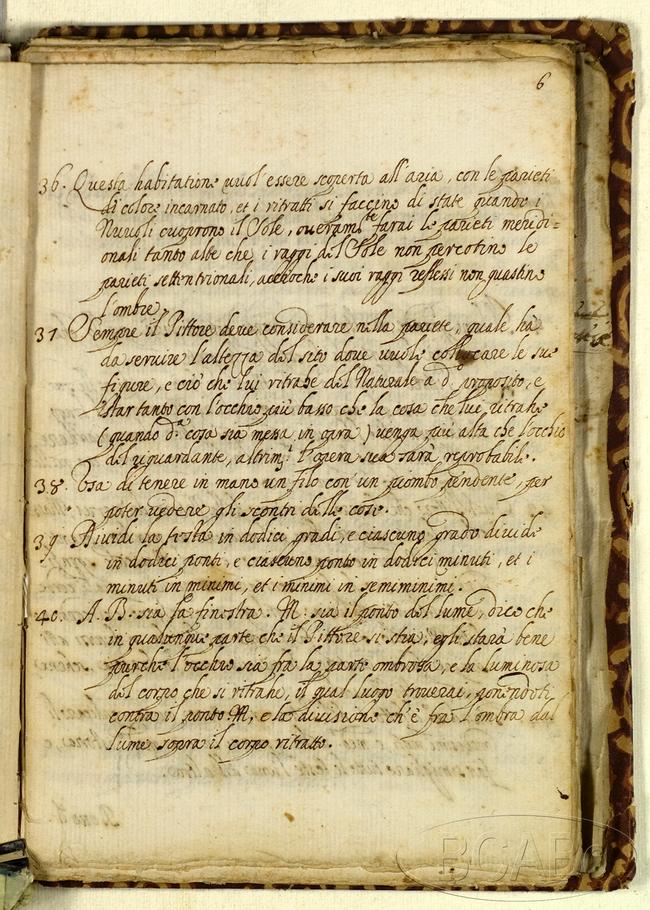 6
36. Questa habitatione vuol essere scoperta all'aria, con le parieti
di colore incarnato, et i ritratti si faccino di state quando i
Nuvoli cuoprono il Sole, overam.te farai le parieti meridi=
onali tanto alte che i raggi del Sole non percotino le
parieti settentrionali, accioche i suoi raggi reflessi non guastino
l'ombre.
37 Sempre il Pittore deve considerare nella pariete, quale ha
da servire l'altezza del sito dove vuole collocare le sue
figure, e ciò che lui ritrahe del Naturale a d.o proposito, e
star tanto con l'occhio più basso che la cosa che lui ritrahe
(quando d.a cosa sia messa in opra) venga più alta che l'occhio
del riguardante, altrim.i l'opera sua sarà reprobabile.
38. Usa di tenere in mano un filo con un piombo pendente, per
poter vedere gli scontri delle cose.
39. Dividi la testa in dodici gradi, e ciascuno grado divide
in dodici ponti, e ciascuno ponto in dodici minuti, et i
minuti in minimi, et i minimi in semiminimi.
40. A. B: sia la finestra. M: sia il ponto del lume, dico che
in qualunque parte che il Pittore si stia, egli starà bene
purche l'occhio sia frà la parte ombrosa, e la luminosa
del corpo che si ritrahe, il qual luogo troverai, ponendoti
contra il ponto M, e la divisione ch'è fra l'ombra dal
lume sopra il corpo ritratto.
BCABo